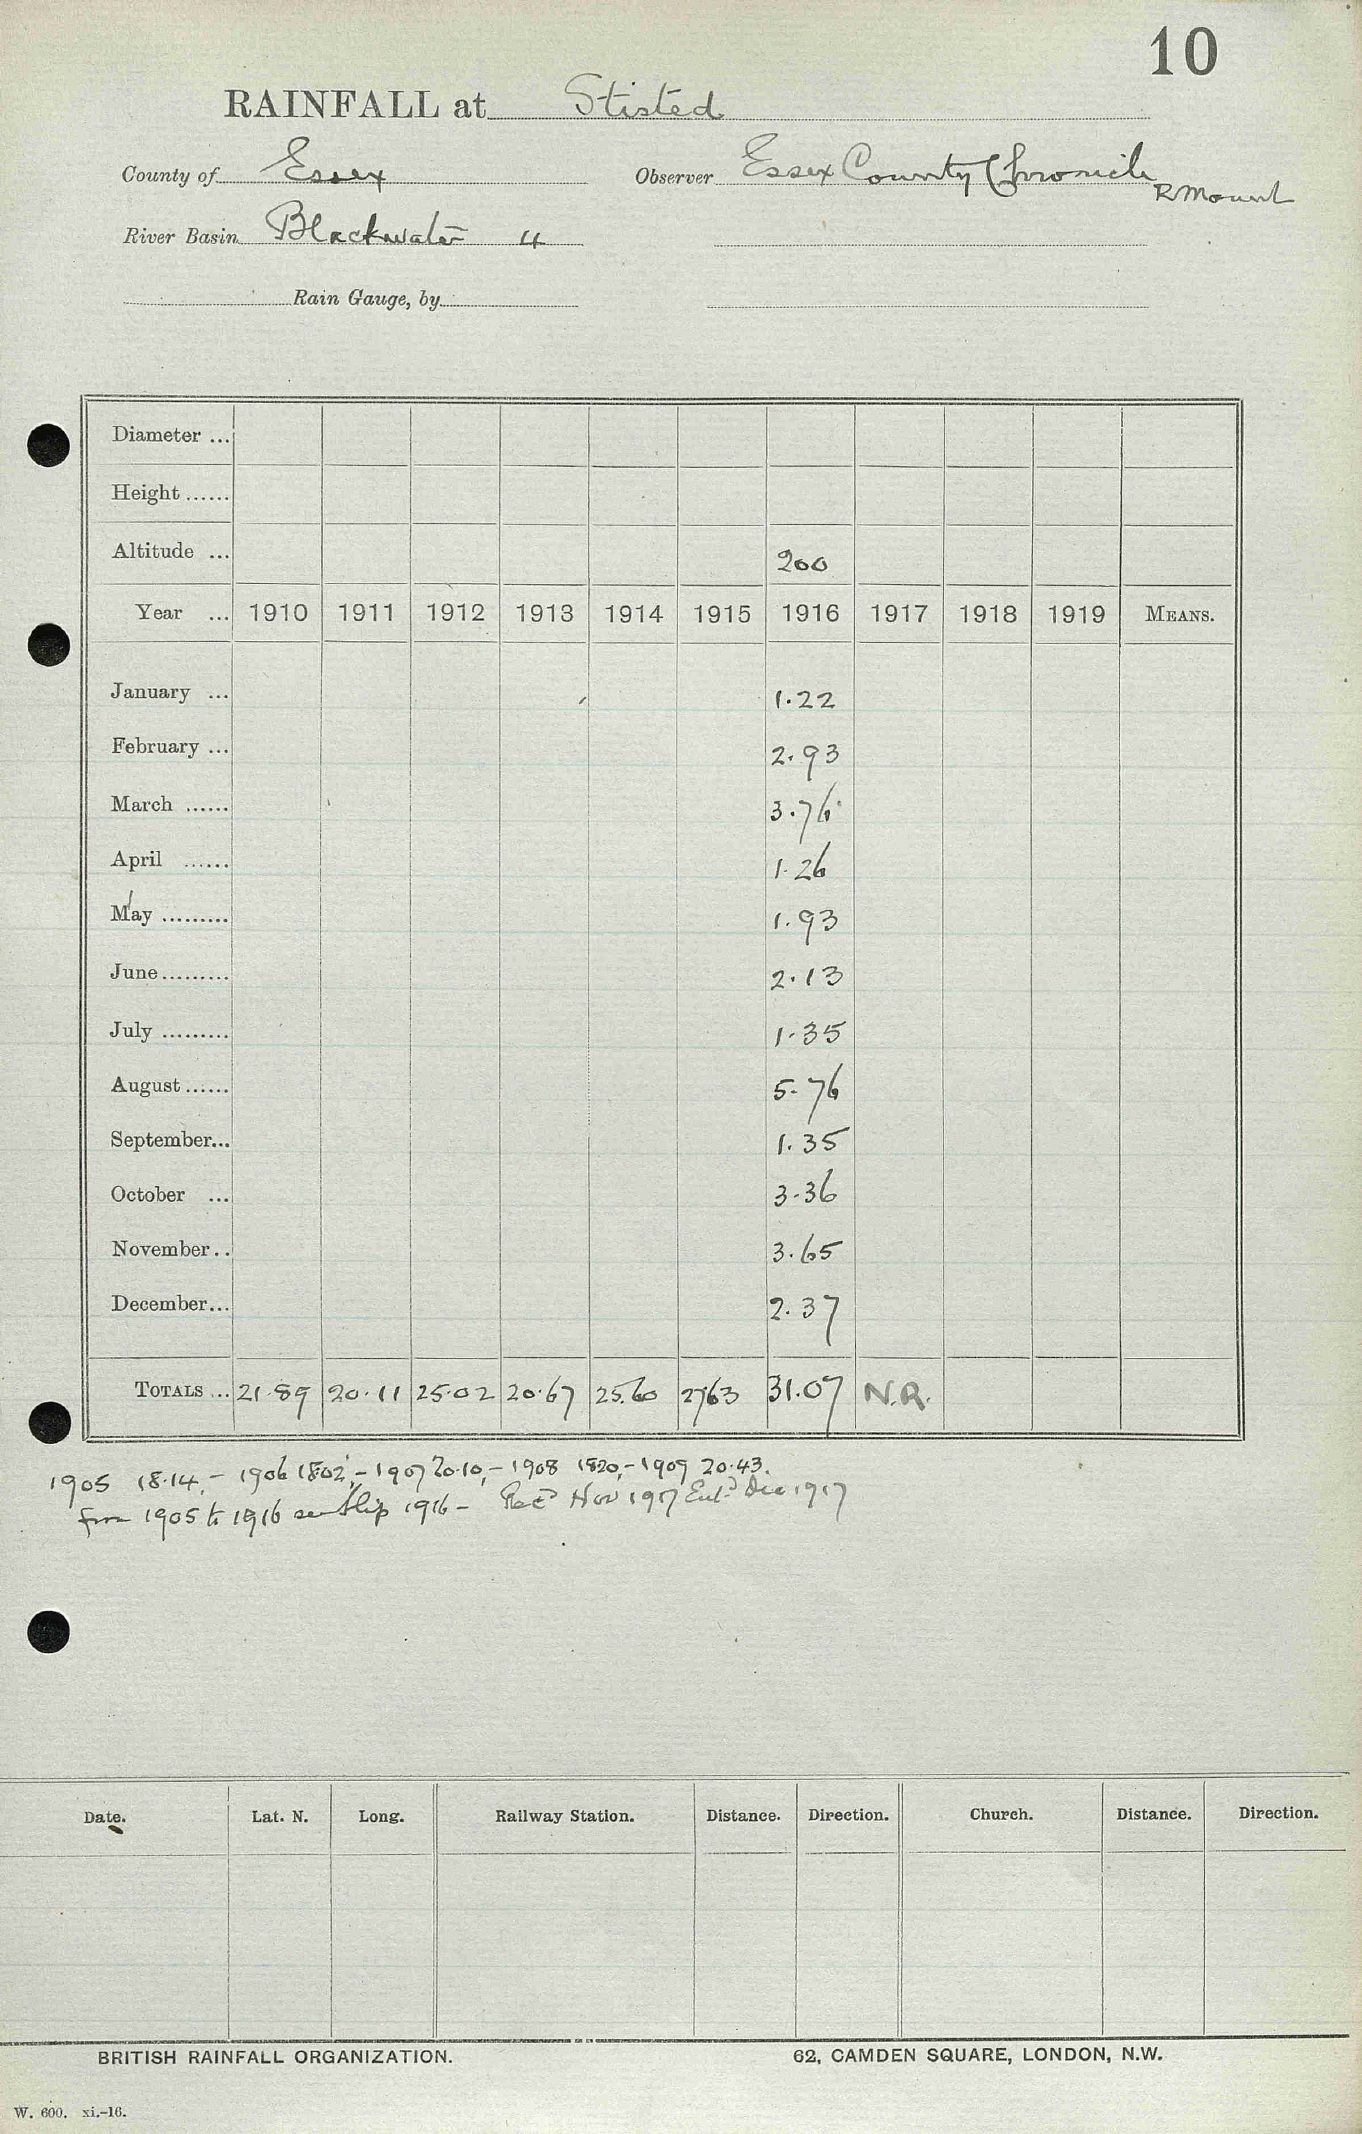 10
RAINFALL at Stisted
County of Essex Observer Essex County Chronicle
R Mount
River Basin Blackwater 4
Rain Gauge, by
Diameter ...
Height ......
Altitude ... 200
Year ... 1910 1911 1912 1913 1914 1915 1916 1917 1918 1919 MEANS.
January ... 1.22
February ... 2.93
March ...... 3.76
April ...... 1.26
May ......... 1.93
June ......... 2.13
July ......... 1.35
August ...... 5.76
September... 1.35
October ... 3.36
November.. 3.65
December... 2.37
TOTALS ... 21.89 20.11 25.02 20.67 25.60 27.63 31.07 N.R.
1905 18.14,- 1906 18.02,- 1907 20.10,- 1908 18.20,- 1909 20.43.
from 1905 to 1916 see slip 1916 - Recd Nov 1917 Entd Dec 1917
Date. Lat. N. Long. Railway Station. Distance. Direction. Church. Distance. Direction.
BRITISH RAINFALL ORGANIZATION. 62, CAMDEN SQUARE, LONDON, N.W.
W. 600. xi.-16.